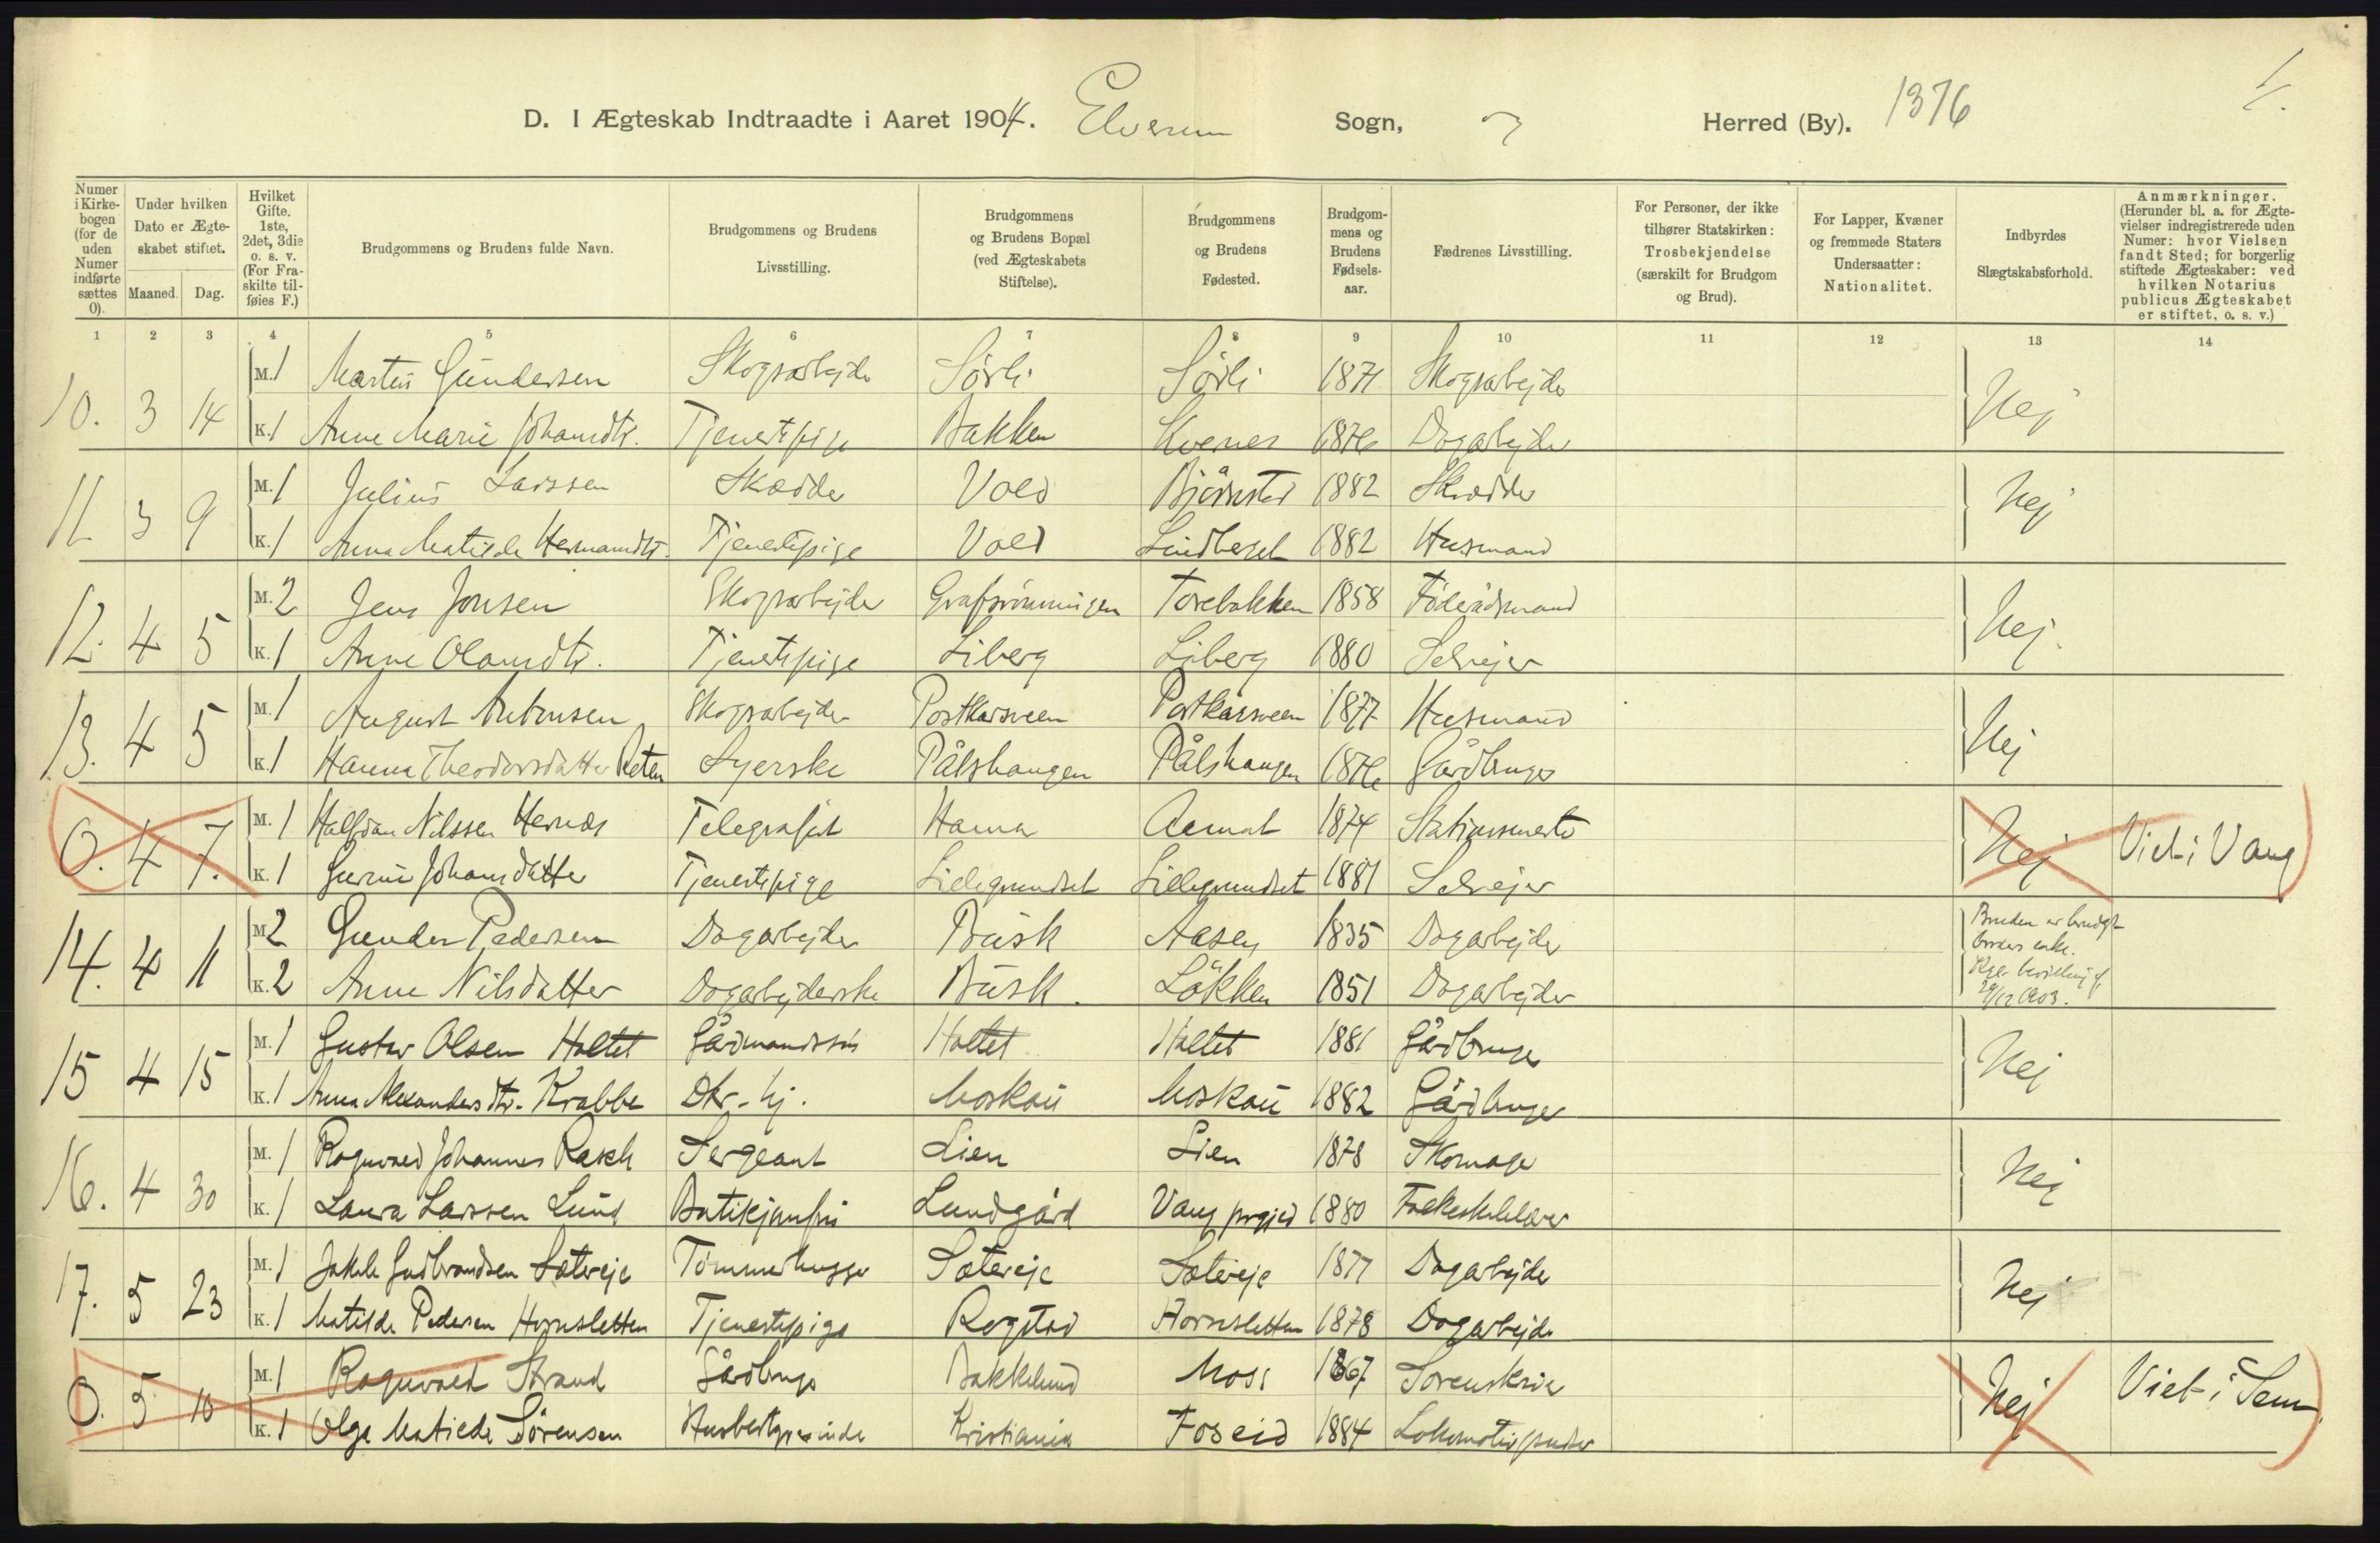 1/.
D. I Ægteskab Indtraadte i Aaret 1904. Elverum Sogn, Herred (By). 1376
Numer i Kirkebogen (for de uden Numer indførte sættes 0).
Under hvilken Dato er Ægteskabet stiftet. Maaned. Dag.
Hvilket Gifte. 1ste, 2det, 3die o. s. v. (For Fraskilte tilføies F.)
Brudgommens og Brudens fulde Navn.
Brudgommens og Brudens Livsstilling.
Brudgommens og Brudens Bopæl (ved Ægteskabets Stiftelse).
Brudgommens og Brudens Fødested.
Brudgommens og Brudens Fødselsaar.
Fædrenes Livsstilling.
For Personer, der ikke tilhører Statskirken: Trosbekjendelse (særskilt for Brudgom og Brud).
For Lapper, Kvæner og fremmede Staters Undersaatter: Nationalitet.
Indbyrdes Slægtskabsforhold.
Anmærkninger. (Herunder bl. a. for Ægtevielser indregistrerede uden Numer: hvor Vielsen fandt Sted; for borgerlig stiftede Ægteskaber: ved hvilken Notarius publicus Ægteskabet er stiftet, o. s. v.)
1 2 3 4 5 6 7 8 9 10 11 12 13 14
10. 3 14 M. 1 Gundersen Skogsarbejder Sørli Sørli 1871 Skogsarbejder Nej
K. 1 Anne Marie Johansdtr. Tjenestepige Bakken Kvernes 1876 Dagarbejder
11 3 9 M. 1 Julius Larssen Skrædder Vold Björnstad 1882 Skrædder Nej
K. 1 Anna Matilde Hermansdtr. Tjenestepige Vold Lindberget 1882 Husmand
12. 4 5 M. 2 Jens Jonsen Skogsarbejder Grafsrønningen Torebakken 1858 Föderådsmand Nej.
K. 1 Anne Olausdtr. Tjenestepige Liberg Liberg 1880 Selvejer
13. 4 5 M. 1 August Antonsen Skogsarbejder Postkarsveen Postkarsveen 1877 Husmand Nej
K. 1 Hanna Theodorsdatter Syerske Pålshaugen Pålshaugen 1876 Gårdbruger
0. 4 7. M. 1 Halfdan Nilssen Hernes Telegrafist Hamar Aamot 1874 Stationsmester Nej Viet i Vang
K. 1 Johansdatter Tjenestepige Lillegrundset Lillegrundset 1881 Selvejer
14. 4 11 M. 2 Gunder Pedersen Dagarbejder Busk Aasen 1835 Dagarbejder Bruden er brudg. brors enke.
K. 2 Anne Nilsdatter Dagarbejderske Busk. Løkken 1851 Dagarbejder Kgl. bevilling af 29/12 1903.
15 4 15 M. 1 Gustav Olsen Holtet Gårdmandssøn Holtet Holtet 1881 Gårdbruger Nej
K. 1 Anna Alexandersdtr. Krabbe Dtr. hj. Moskau Moskau 1882 Gårdbruger
16. 4 30 M. 1 Ragnvald Johannes Rasch Sergeant Lien Lien 1878 Skomager Nej
K. 1 Laura Larssen Lund Butikjomfru Lundgård Vang prgjeld 1880 Folkeskolelærer
17. 5 23 M. 1 Jakob Gudbrandsen Sætereje Tømmerhugger Sætereje Sætereje 1877 Dagarbejder Nej
K. 1 Matilde Pedersen Hornsletten Tjenestepige Rogstad Hornsletten 1878 Dagarbejder
0. 5 10 M. 1 Ragnvald Strand Gårdbruger Bakkelund Moss 1867 Sorenskriver Nej Viet i Sem.
K. 1 Olga Matilde Sörensen Husbestyrerinde Kristiania Foseid 1884 Lokomotivpudser